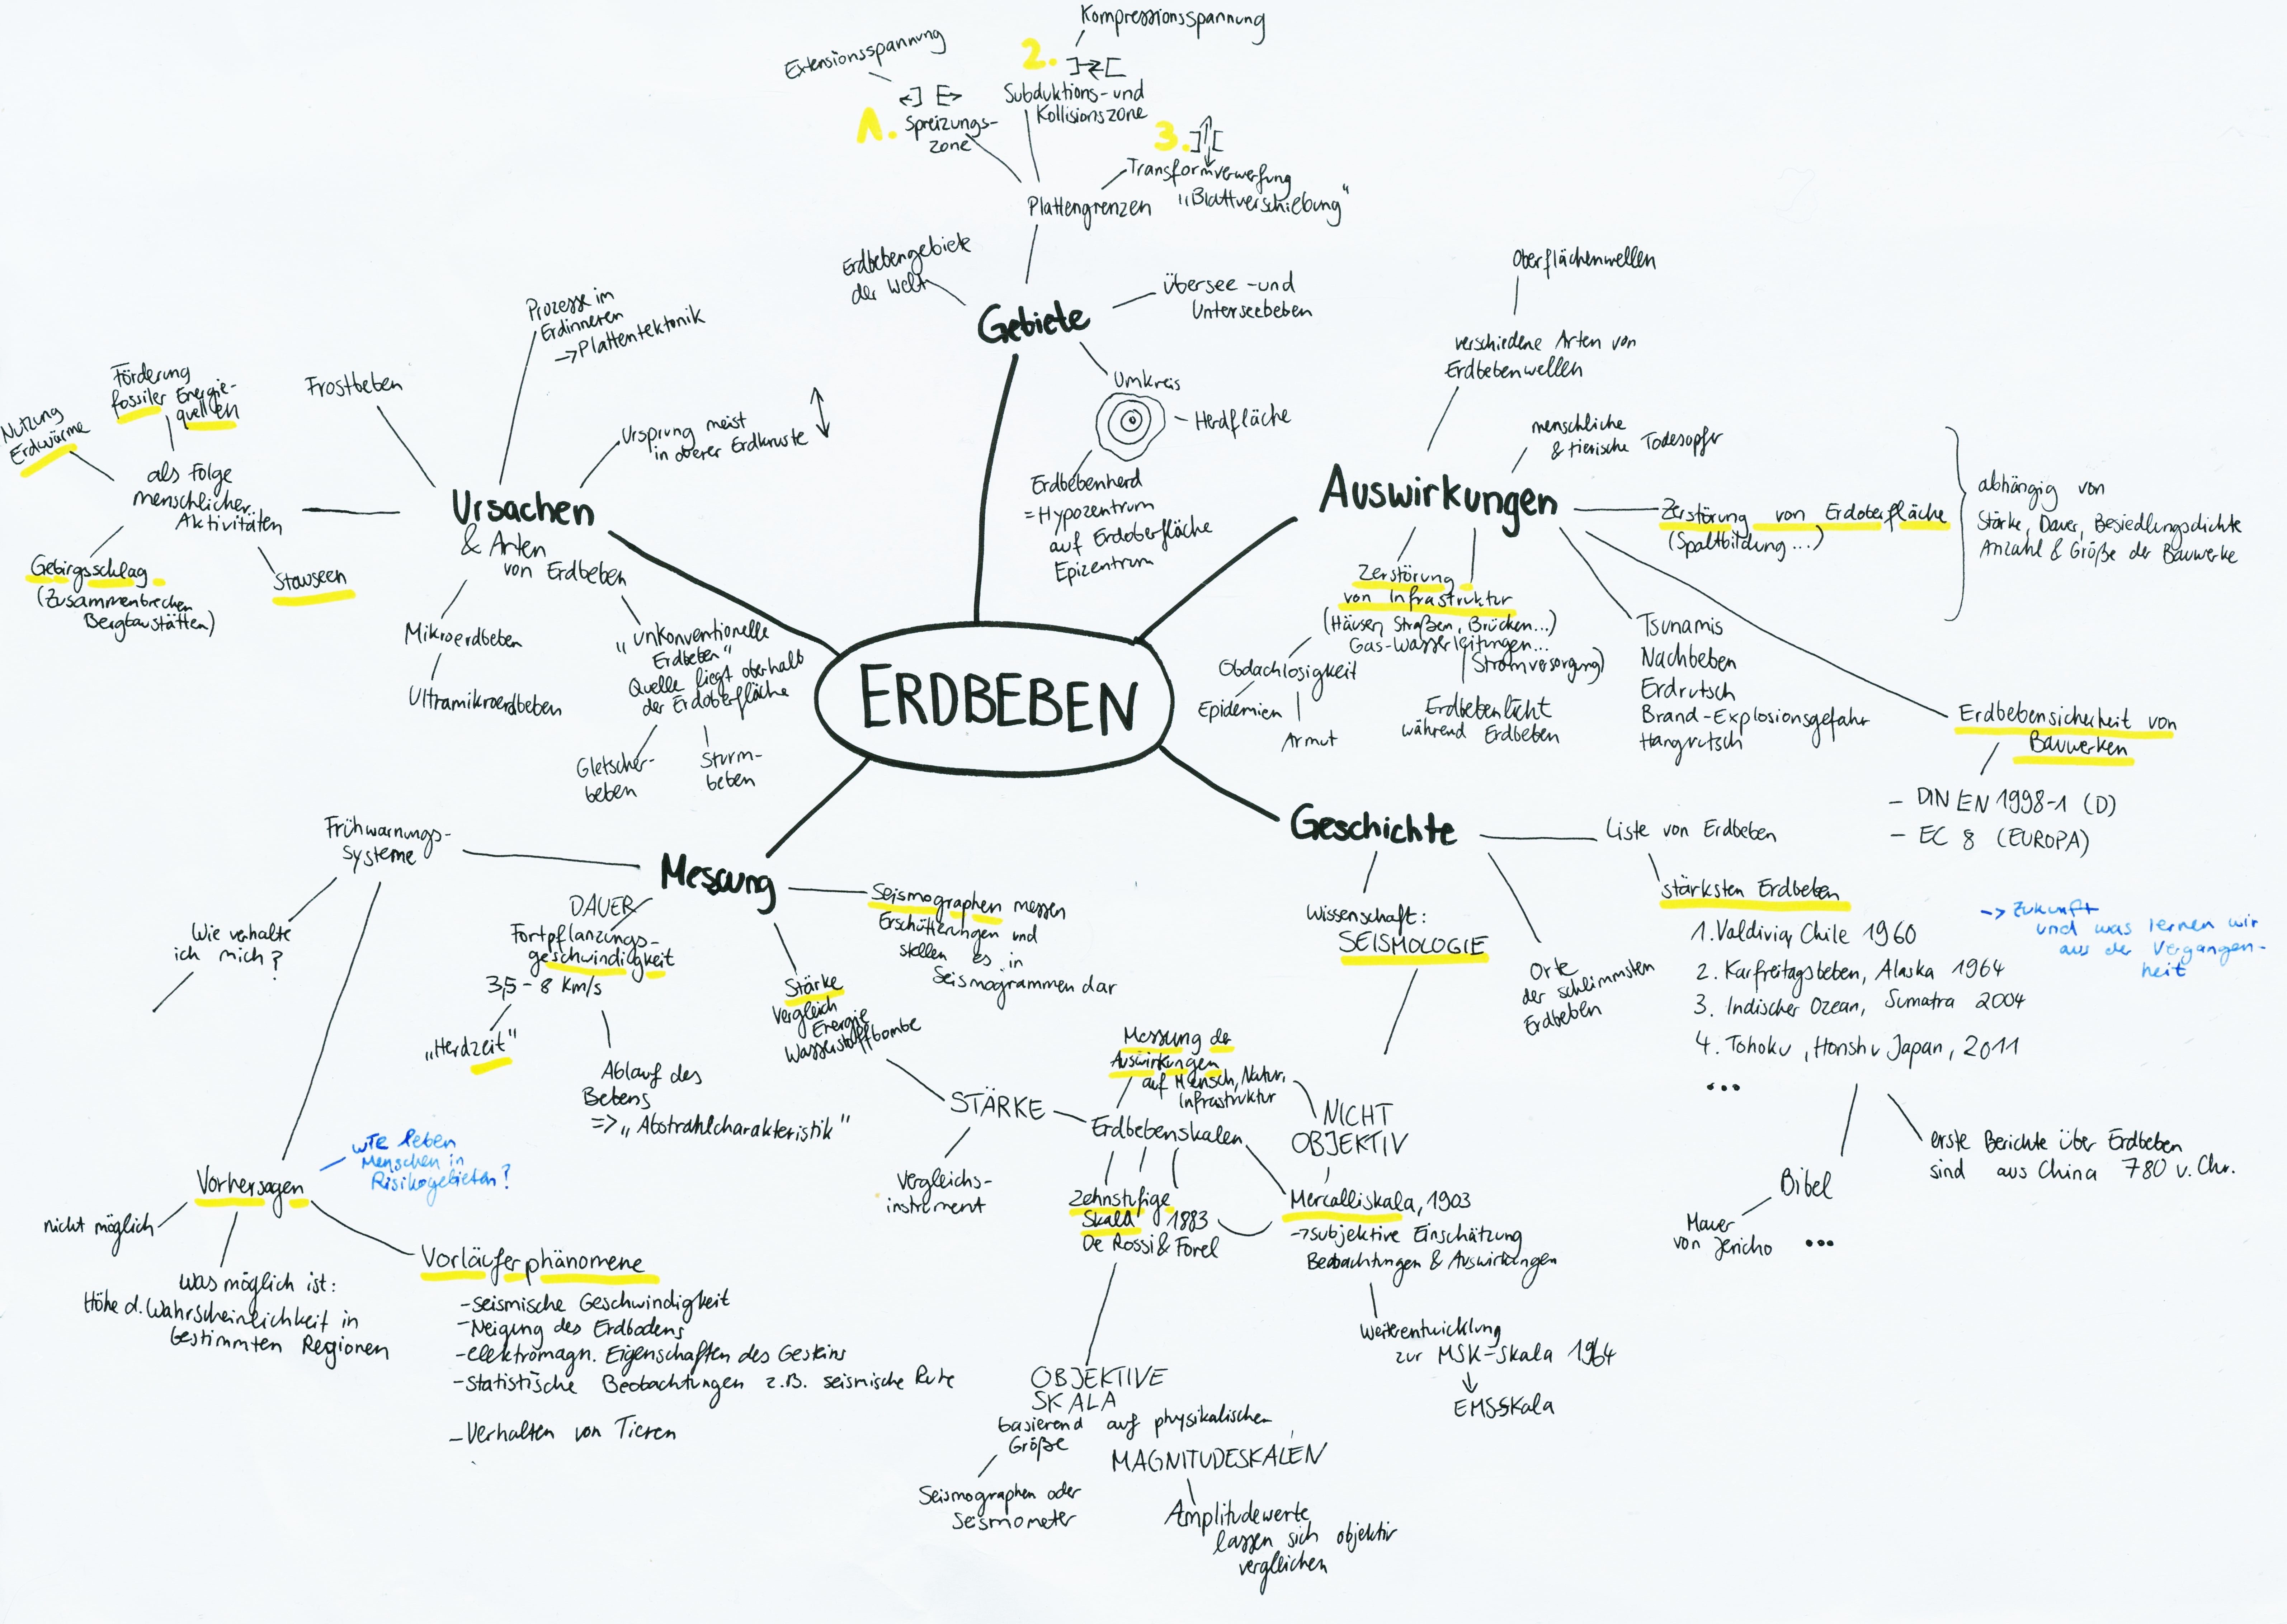 Kompressionsspannung
Extensionsspannung
2.
1.
Spreizungs-
zone
Subduktions- und
Kollisionszone
3.
Transformverwerfung
"Blattverschiebung"
Plattengrenzen
Erdbebengebiete
der Welt
Gebiete
Übersee- und
Unterseebeben
Umkreis
Herdfläche
Erdbebenherd
= Hypozentrum
auf Erdoberfläche
Epizentrum
Prozesse im
Erdinneren
-> Plattentektonik
Frostbeben
Ursprung meist
in oberer Erdkruste
Förderung
fossiler Energie-
quellen
Nutzung
Erdwärme
als Folge
menschlicher
Aktivitäten
Gebirgsschlag
(Zusammenbrechen
Bergbaustätten)
Stauseen
Ursachen
& Arten
von Erdbeben
Mikroerdbeben
Ultramikroerdbeben
"unkonventionelle
Erdbeben"
Quelle liegt oberhalb
der Erdoberfläche
Gletscher-
beben
Sturm-
beben
ERDBEBEN
Oberflächenwellen
verschiedene Arten von
Erdbebenwellen
menschliche
& tierische Todesopfer
Auswirkungen
Zerstörung von Erdoberfläche
(Spaltbildung...)
abhängig von
Stärke, Dauer, Besiedlungsdichte
Anzahl & Größe der Bauwerke
Zerstörung
von Infrastruktur
(Häuser, Straßen, Brücken...)
Gas-Wasserleitungen...
Stromversorgung)
Obdachlosigkeit
Epidemien
Armut
Erdbebenlicht
während Erdbeben
Tsunamis
Nachbeben
Erdrutsch
Brand-Explosionsgefahr
Hangrutsch
Erdbebensicherheit von
Bauwerken
- DIN EN 1998-1 (D)
- EC 8 (EUROPA)
Geschichte
Liste von Erdbeben
stärksten Erdbeben
1. Valdivia, Chile 1960
2. Karfreitagsbeben, Alaska 1964
3. Indischer Ozean, Sumatra 2004
4. Tohoku, Honshu Japan, 2011
...
-> Zukunft
und was lernen wir
aus der Vergangen-
heit
erste Berichte über Erdbeben
sind aus China 780 v. Chr.
Bibel
Mauer
von Jericho ...
Orte
der schlimmsten
Erdbeben
Wissenschaft:
SEISMOLOGIE
Messung
Frühwarnungs-
systeme
Wie verhalte
ich mich?
DAUER
Fortpflanzungs-
geschwindigkeit
3,5 - 8 km/s
"Herdzeit"
Ablauf des
Bebens
=> "Abstrahlcharakteristik"
Seismographen messen
Erschütterungen und
stellen es in
Seismogrammen dar
Stärke
Vergleich
Energie
Wasserstoffbombe
STÄRKE
Vergleichs-
instrument
Erdbebenskalen
Messung der
Auswirkungen
auf Mensch, Natur,
Infrastruktur
NICHT
OBJEKTIV
Zehnstufige
Skala 1883
De Rossi & Forel
Mercalliskala, 1903
-> subjektive Einschätzung
Beobachtungen & Auswirkungen
Weiterentwicklung
zur MSK-Skala 1964
EMS-Skala
OBJEKTIVE
SKALA
basierend auf physikalischen
Größe
MAGNITUDESKALEN
Seismographen oder
Seismometer
Amplitudewerte
lassen sich objektiv
vergleichen
Vorhersagen
wie leben
Menschen in
Risikogebieten?
nicht möglich
was möglich ist:
Höhe d. Wahrscheinlichkeit in
bestimmten Regionen
Vorläuferphänomene
- seismische Geschwindigkeit
- Neigung des Erdbodens
- elektromagn. Eigenschaften des Gesteins
- statistische Beobachtungen z.B. seismische Ruhe
- Verhalten von Tieren